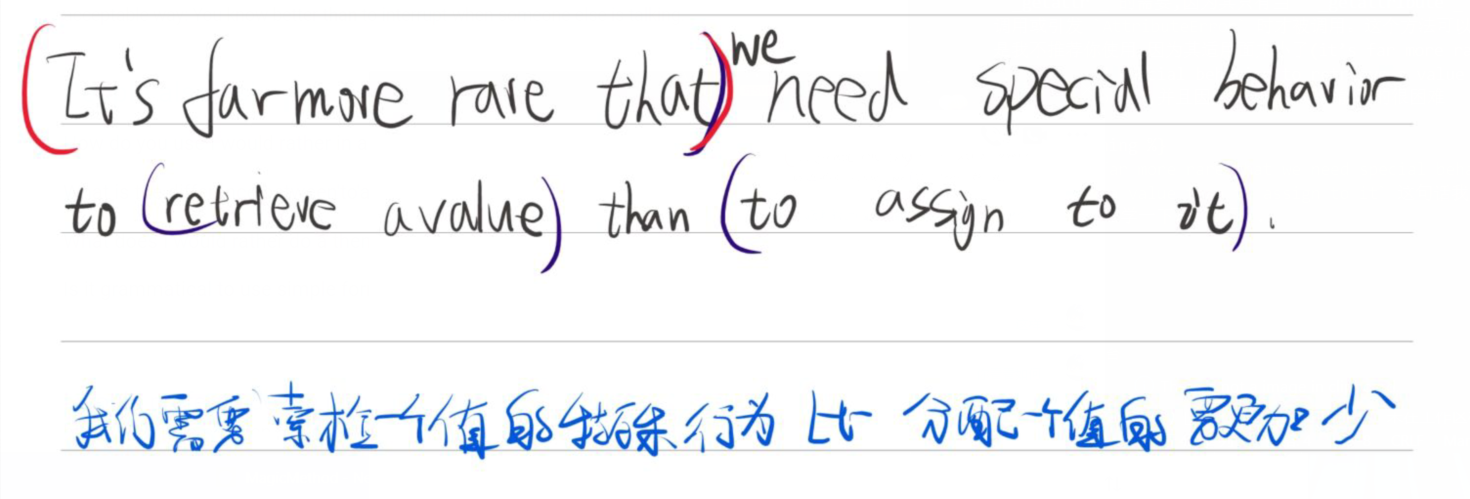 (It's far more rare that) we need special behavior
to (retrieve a value) than (to assign to it).
我们需要索检一个值的特殊行为比分配一个值的要更加少